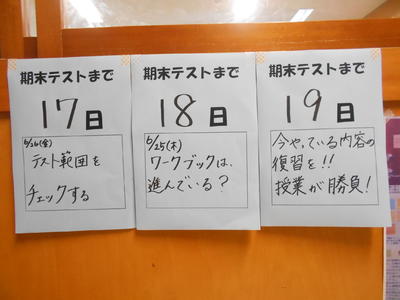 期末テストまで
17日
6/26(金)
テスト範囲を
チェックする
期末テストまで
18日
6/25(木)
ワークブックは、
進んでいる？
期末テストまで
19日
今やっている内容の
復習を!!
授業が勝負!